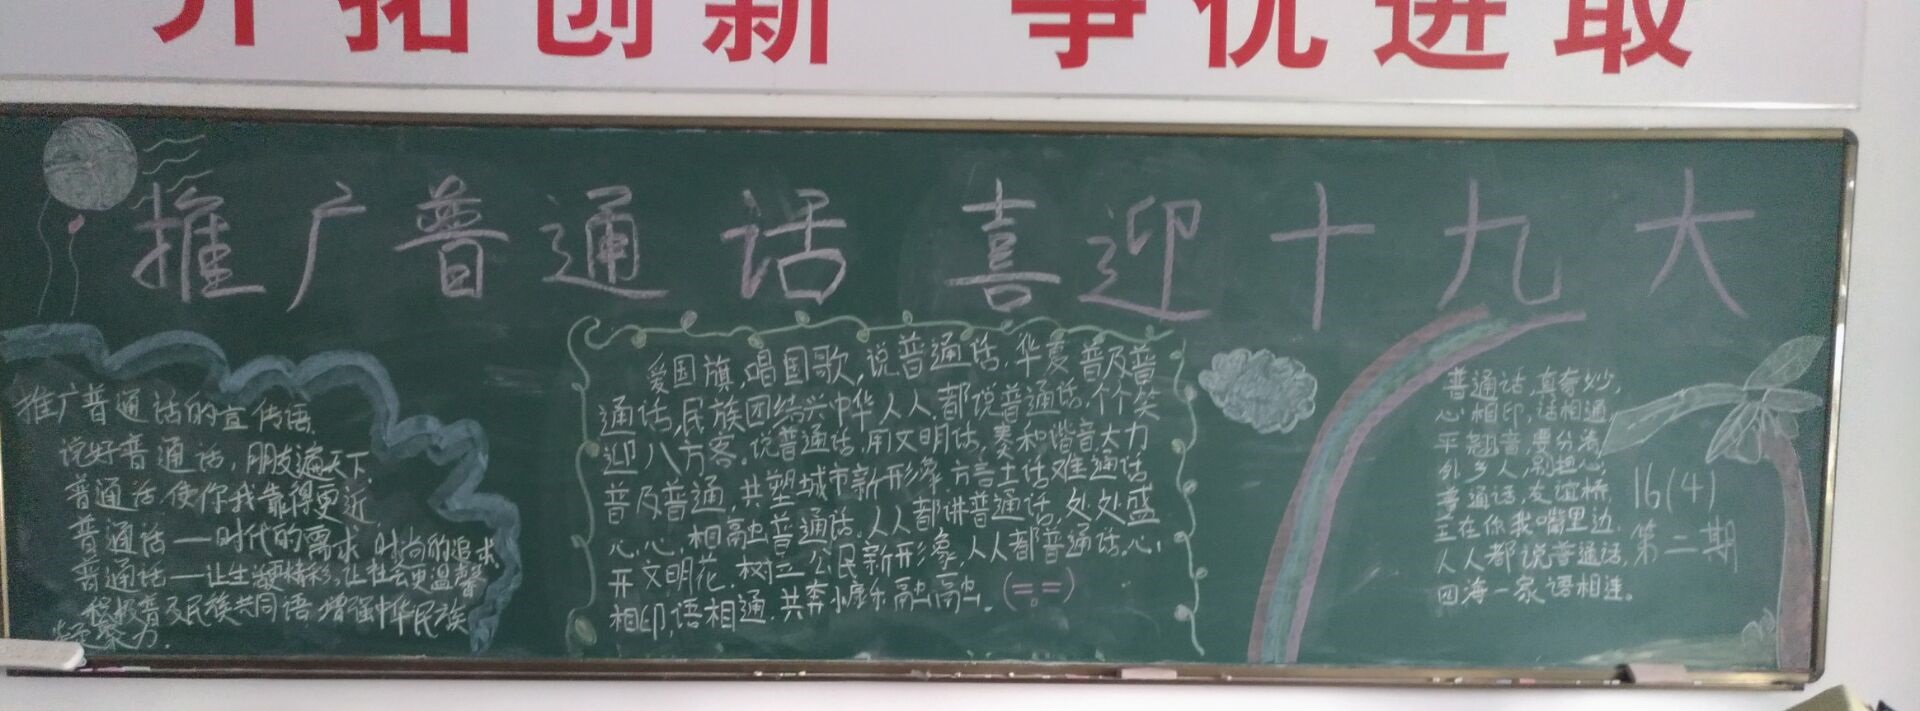 开拓创新 争优进取
推广普通话 喜迎十九大
推广普通话的宣传语
说好普通话,朋友遍天下
普通话,使你我靠得更近
普通话——时代的需求,时尚的追求
普通话——让生活更精彩,让社会更温馨
积极普及民族共同语,增强中华民族
凝聚力.
爱国旗,唱国歌,说普通话.华夏普及普
通话,民族团结兴中华,人人都说普通话,个个笑
迎八方客.说普通话,用文明话,奏和谐音,大力
普及普通,共塑城市新形象.方言土话难通话
心,心,相融普通话.人人都讲普通话,处处盛
开文明花,树立公民新形象,人人都普通话,心,
相印,语相通.共奔小康乐融融。(二)
普通话,真奇妙,
心相印,话相通,
平翘音,要分清,
外乡人,别担心,
普通话,友谊桥,
王在你我嘴里边.
人人都说普通话,
四海一家语相连。
16(4)
第二期